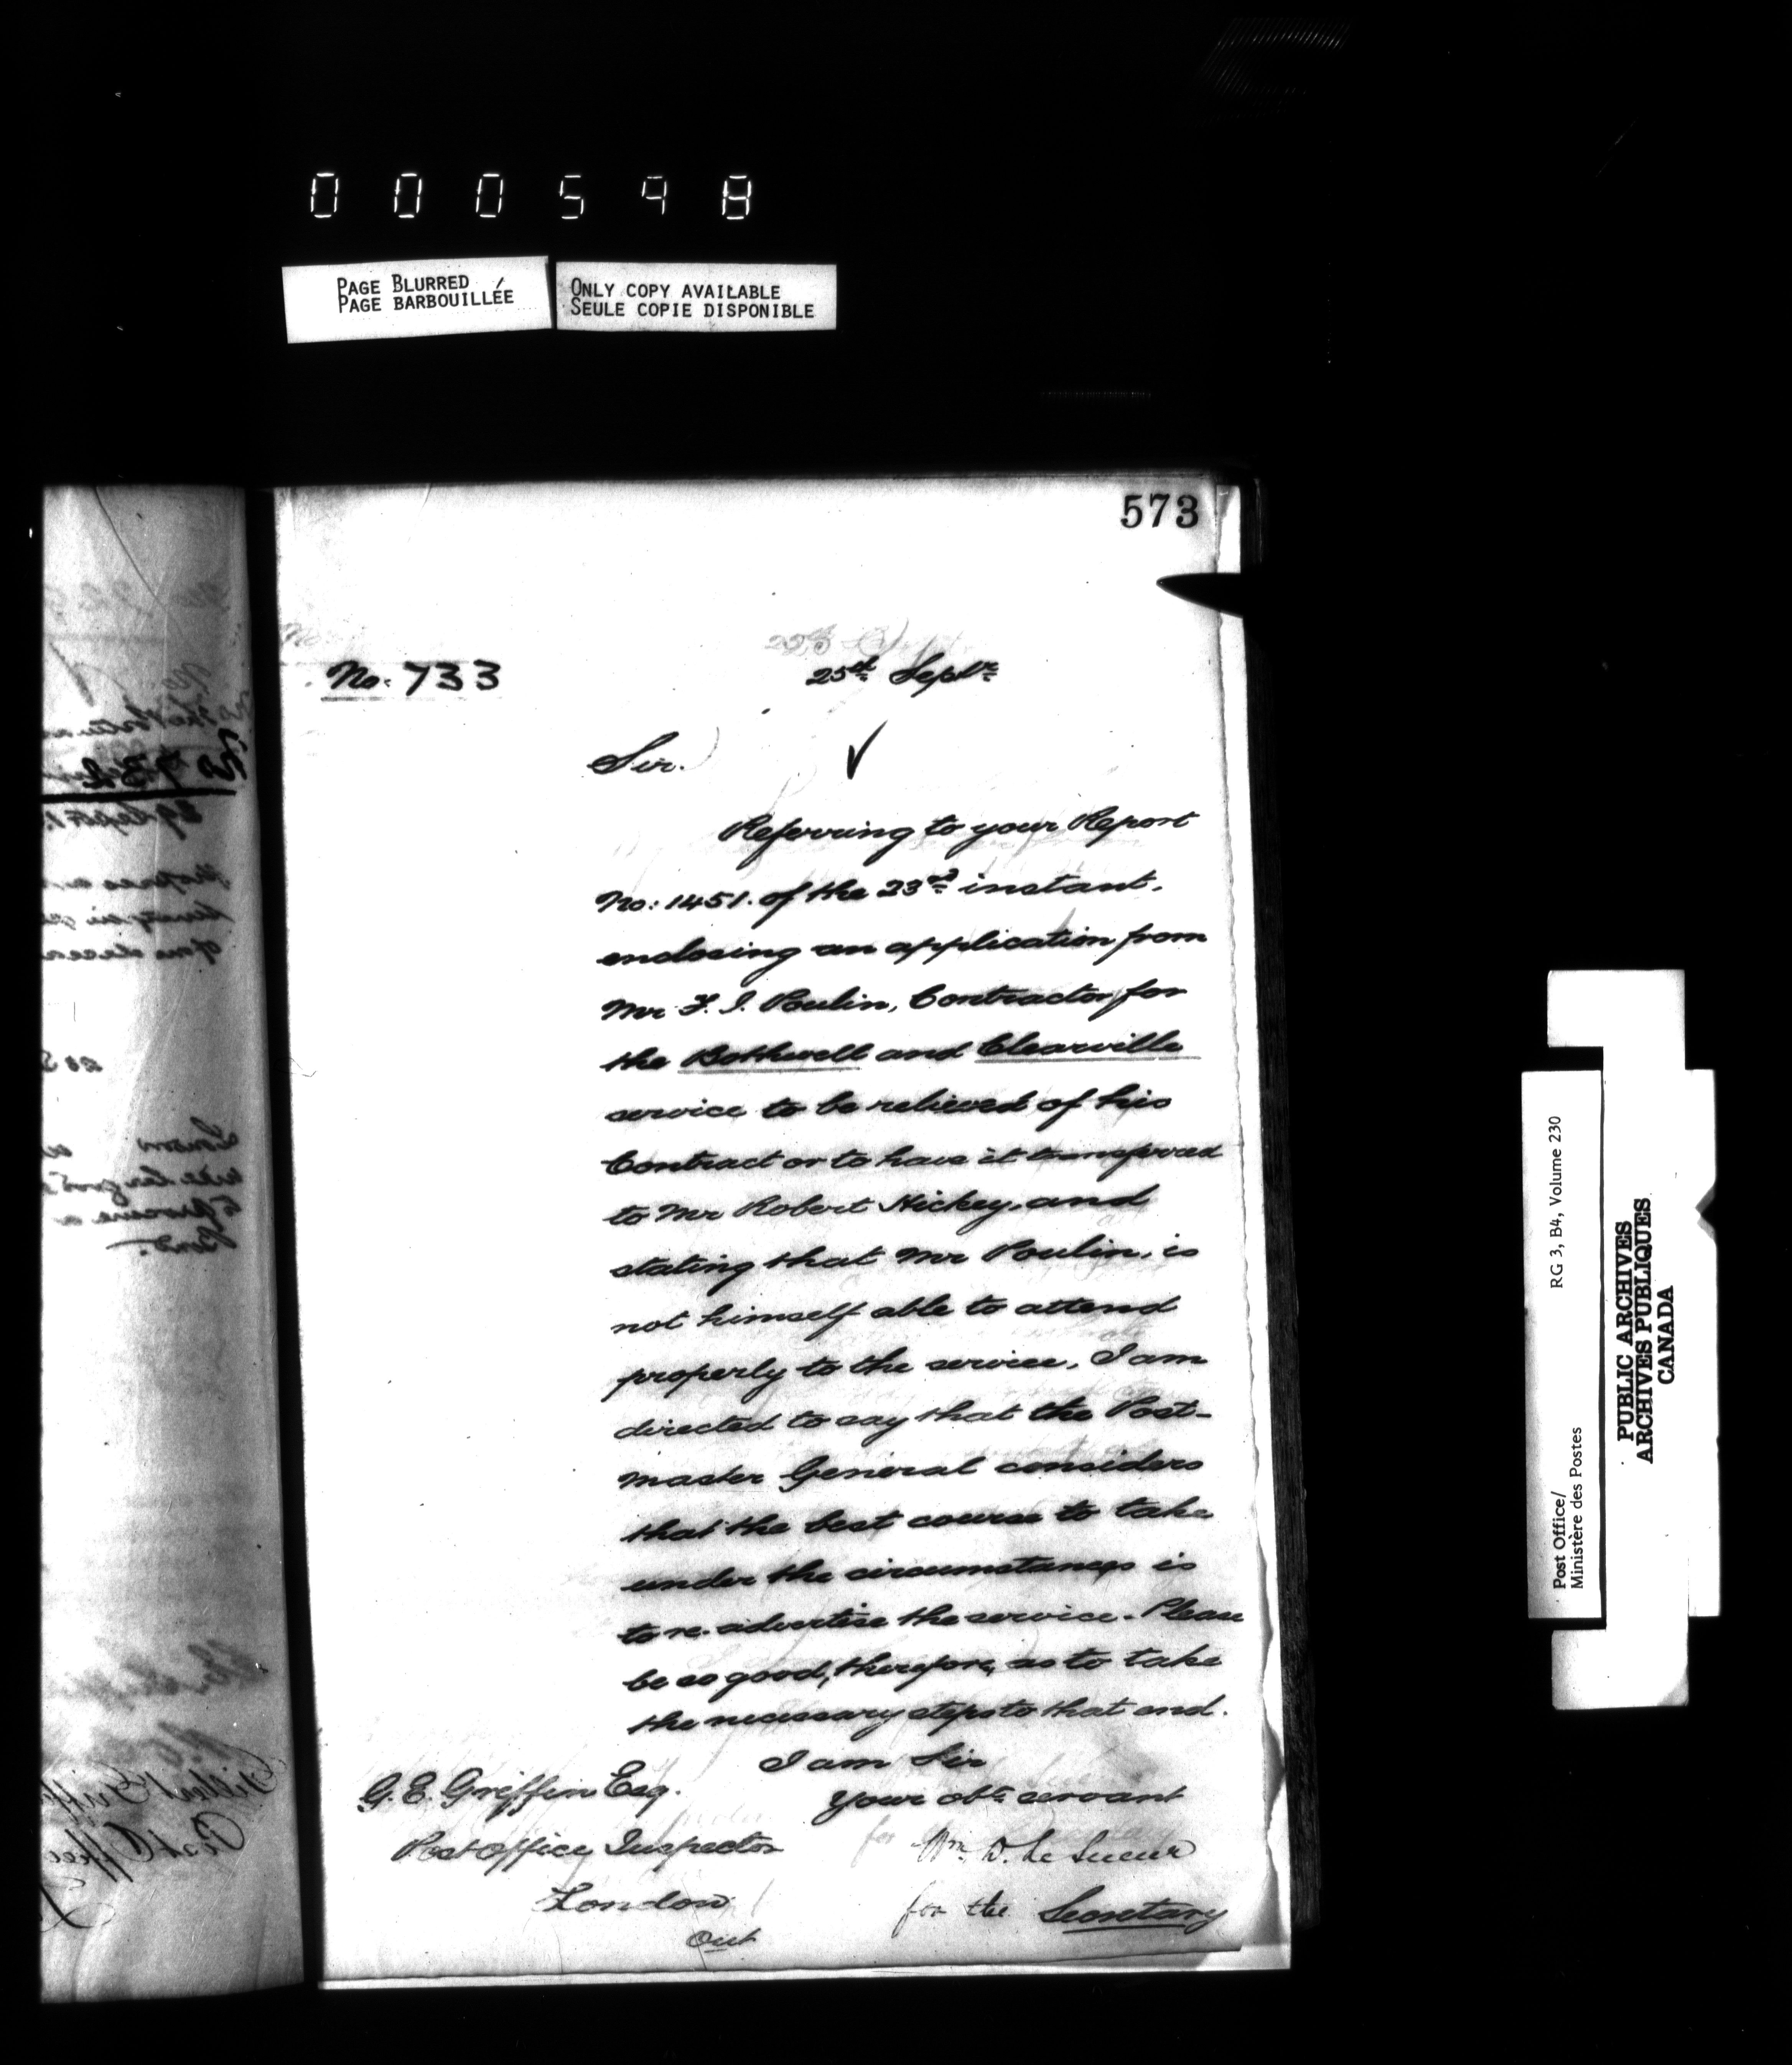 000598
PAGE BLURRED
PAGE BARBOUILLÉE
ONLY COPY AVAILABLE
SEULE COPIE DISPONIBLE
573
No: 733
25th Septr
Sir.
Referring to your Report
No: 1451. of the 23rd instant,
enclosing an application from
Mr F. I. Poulin, Contractor for
the Bothwell and Clearville
service to be relieved of his
Contract or to have it transferred
to Mr Robert Hickey, and
stating that Mr Poulin, is
not himself able to attend
properly to the service, I am
directed to say that the Post-
master General considers
that the best course to take
under the circumstances is
to re-advertise the service. Please
be so good, therefore, as to take
the necessary steps to that end.
I am Sir
Your obt servant
Wm. D. Le Sueur
for the Secretary
G. E. Griffin Esq.
Post Office Inspector
London
Ont
Post Office/
Ministère des Postes
RG 3, B4, Volume 230
PUBLIC ARCHIVES
ARCHIVES PUBLIQUES
CANADA